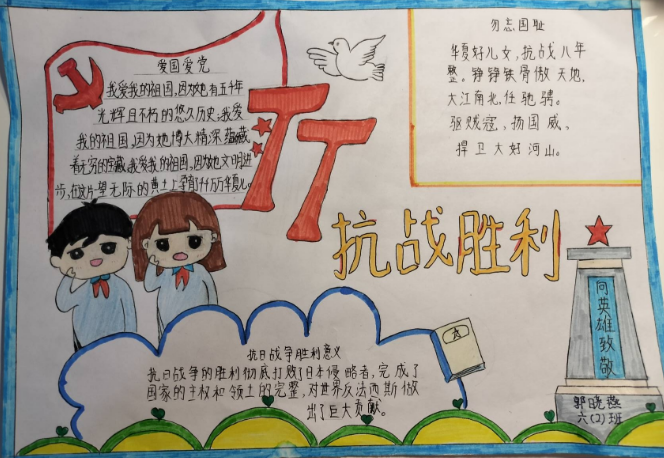 爱国爱党
我爱我的祖国,因为她有五千年
光辉且不朽的悠久历史,我爱
我的祖国,因为她博大精深蕴藏
着无穷的宝藏,我爱我的祖国,因为她文明进
步,在这片一望无际的黄土上孕育了千万万华夏儿。
勿忘国耻
华夏好儿女,抗战八年
整。铮铮铁骨傲天地,
大江南北任驰骋。
驱贼寇,扬国威、
捍卫大好河山。
抗战胜利
向英雄致敬
郭晓燕
六(2)班
抗日战争胜利意义
抗日战争的胜利彻底打败了日本侵略者,完成了
国家的主权和领土的完整,对世界反法西斯做
出了巨大贡献。